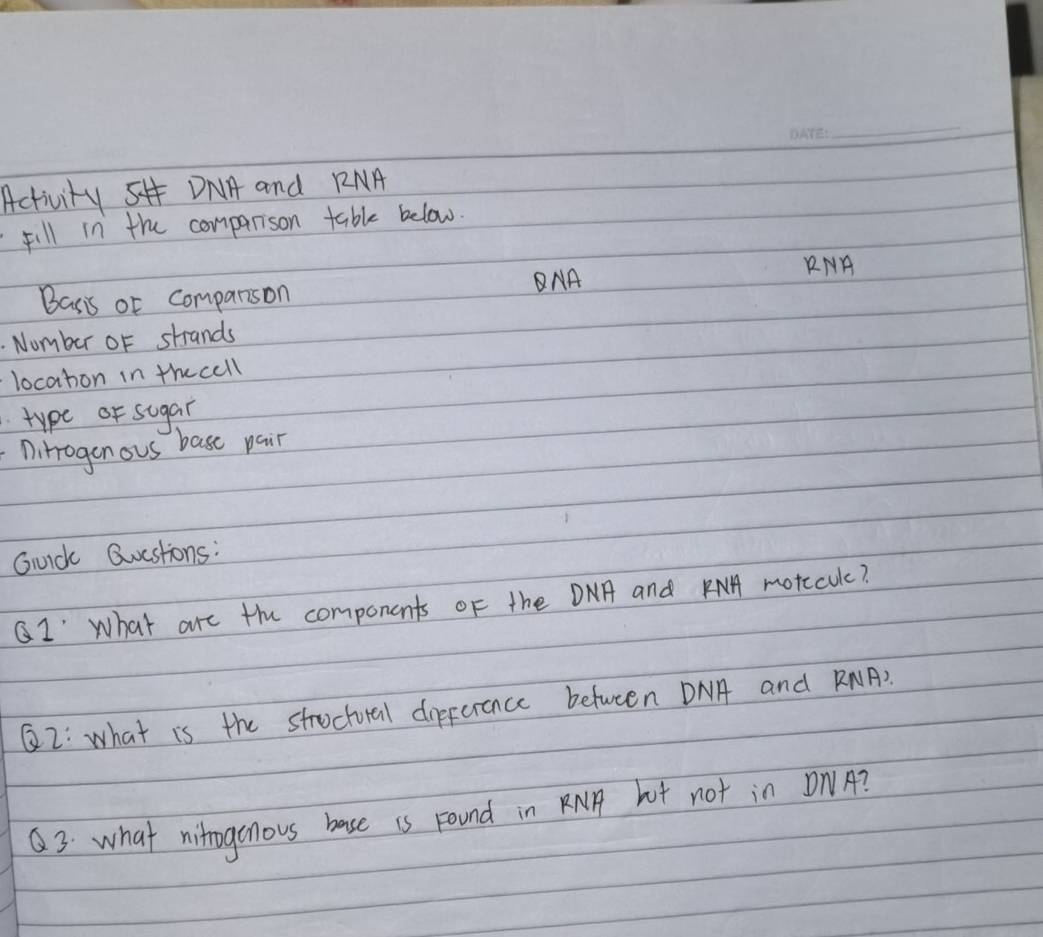 DATE:
Activity 5# DNA and RNA
· Fill in the comparison table below.
Basis of Comparison DNA RNA
· Number of strands
- location in the cell
· type of sugar
- Nitrogenous base pair
Guick Questions:
Q1· What are the components of the DNA and RNA motecule?
Q2: What is the structural difference between DNA and RNA?
Q3· What nitrogenous base is found in RNA but not in DNA?